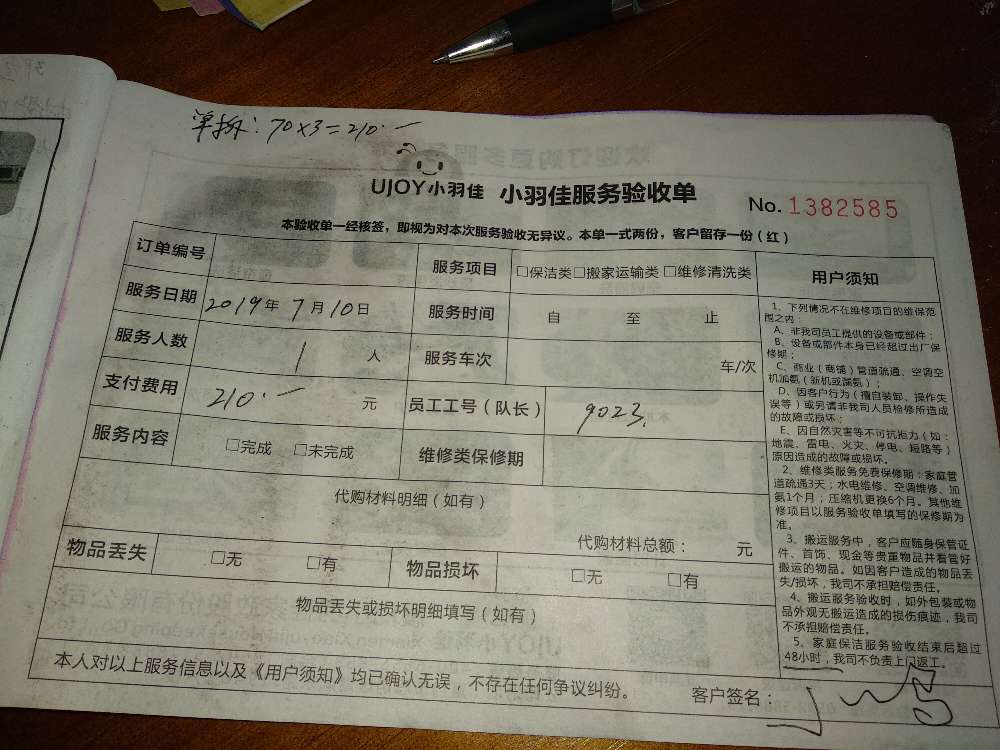 单拆：70×3=210.—
UJOY小羽佳 小羽佳服务验收单 No. 1382585
本验收单一经核签，即视为对本次服务验收无异议。本单一式两份，客户留存一份（红）
订单编号 服务项目 □保洁类□搬家运输类□维修清洗类
服务日期 2019年 7月10日 服务时间 自 至 止
服务人数 1 人 服务车次 车/次
支付费用 210.— 元 员工工号（队长） 9023
服务内容 □完成 □未完成 维修类保修期
代购材料明细（如有）
代购材料总额： 元
物品丢失 □无 □有 物品损坏 □无 □有
物品丢失或损坏明细填写（如有）
本人对以上服务信息以及《用户须知》均已确认无误，不存在任何争议纠纷。 客户签名：
用户须知
1、下列情况不在维修项目的维保范
围之内：
A、非我司员工提供的设备或部件；
B、设备或部件本身已经超过出厂保
修期；
C、商业（商铺）管道疏通、空调空
机加氨（新机或漏氨）；
D、因客户行为（擅自装卸、操作失
误等）或另请非我司人员检修所造成
的故障或损坏；
E、因自然灾害等不可抗拒力（如：
地震、雷电、火灾、停电、短路等）
原因造成的故障或损坏。
2、维修类服务免费保修期：家庭管
道疏通3天；水电维修、空调维修、加
氨1个月；压缩机更换6个月。其他维
修项目以服务验收单填写的保修期为
准。
3、搬运服务中，客户应随身保管证
件、首饰、现金等贵重物品并看管好
搬运的物品。如因客户造成的物品丢
失/损坏，我司不承担赔偿责任。
4、搬运服务验收时，如外包装或物
品外观无搬运造成的损伤痕迹，我司
不承担赔偿责任。
5、家庭保洁服务验收结束后超过
48小时，我司不负责上门返工。